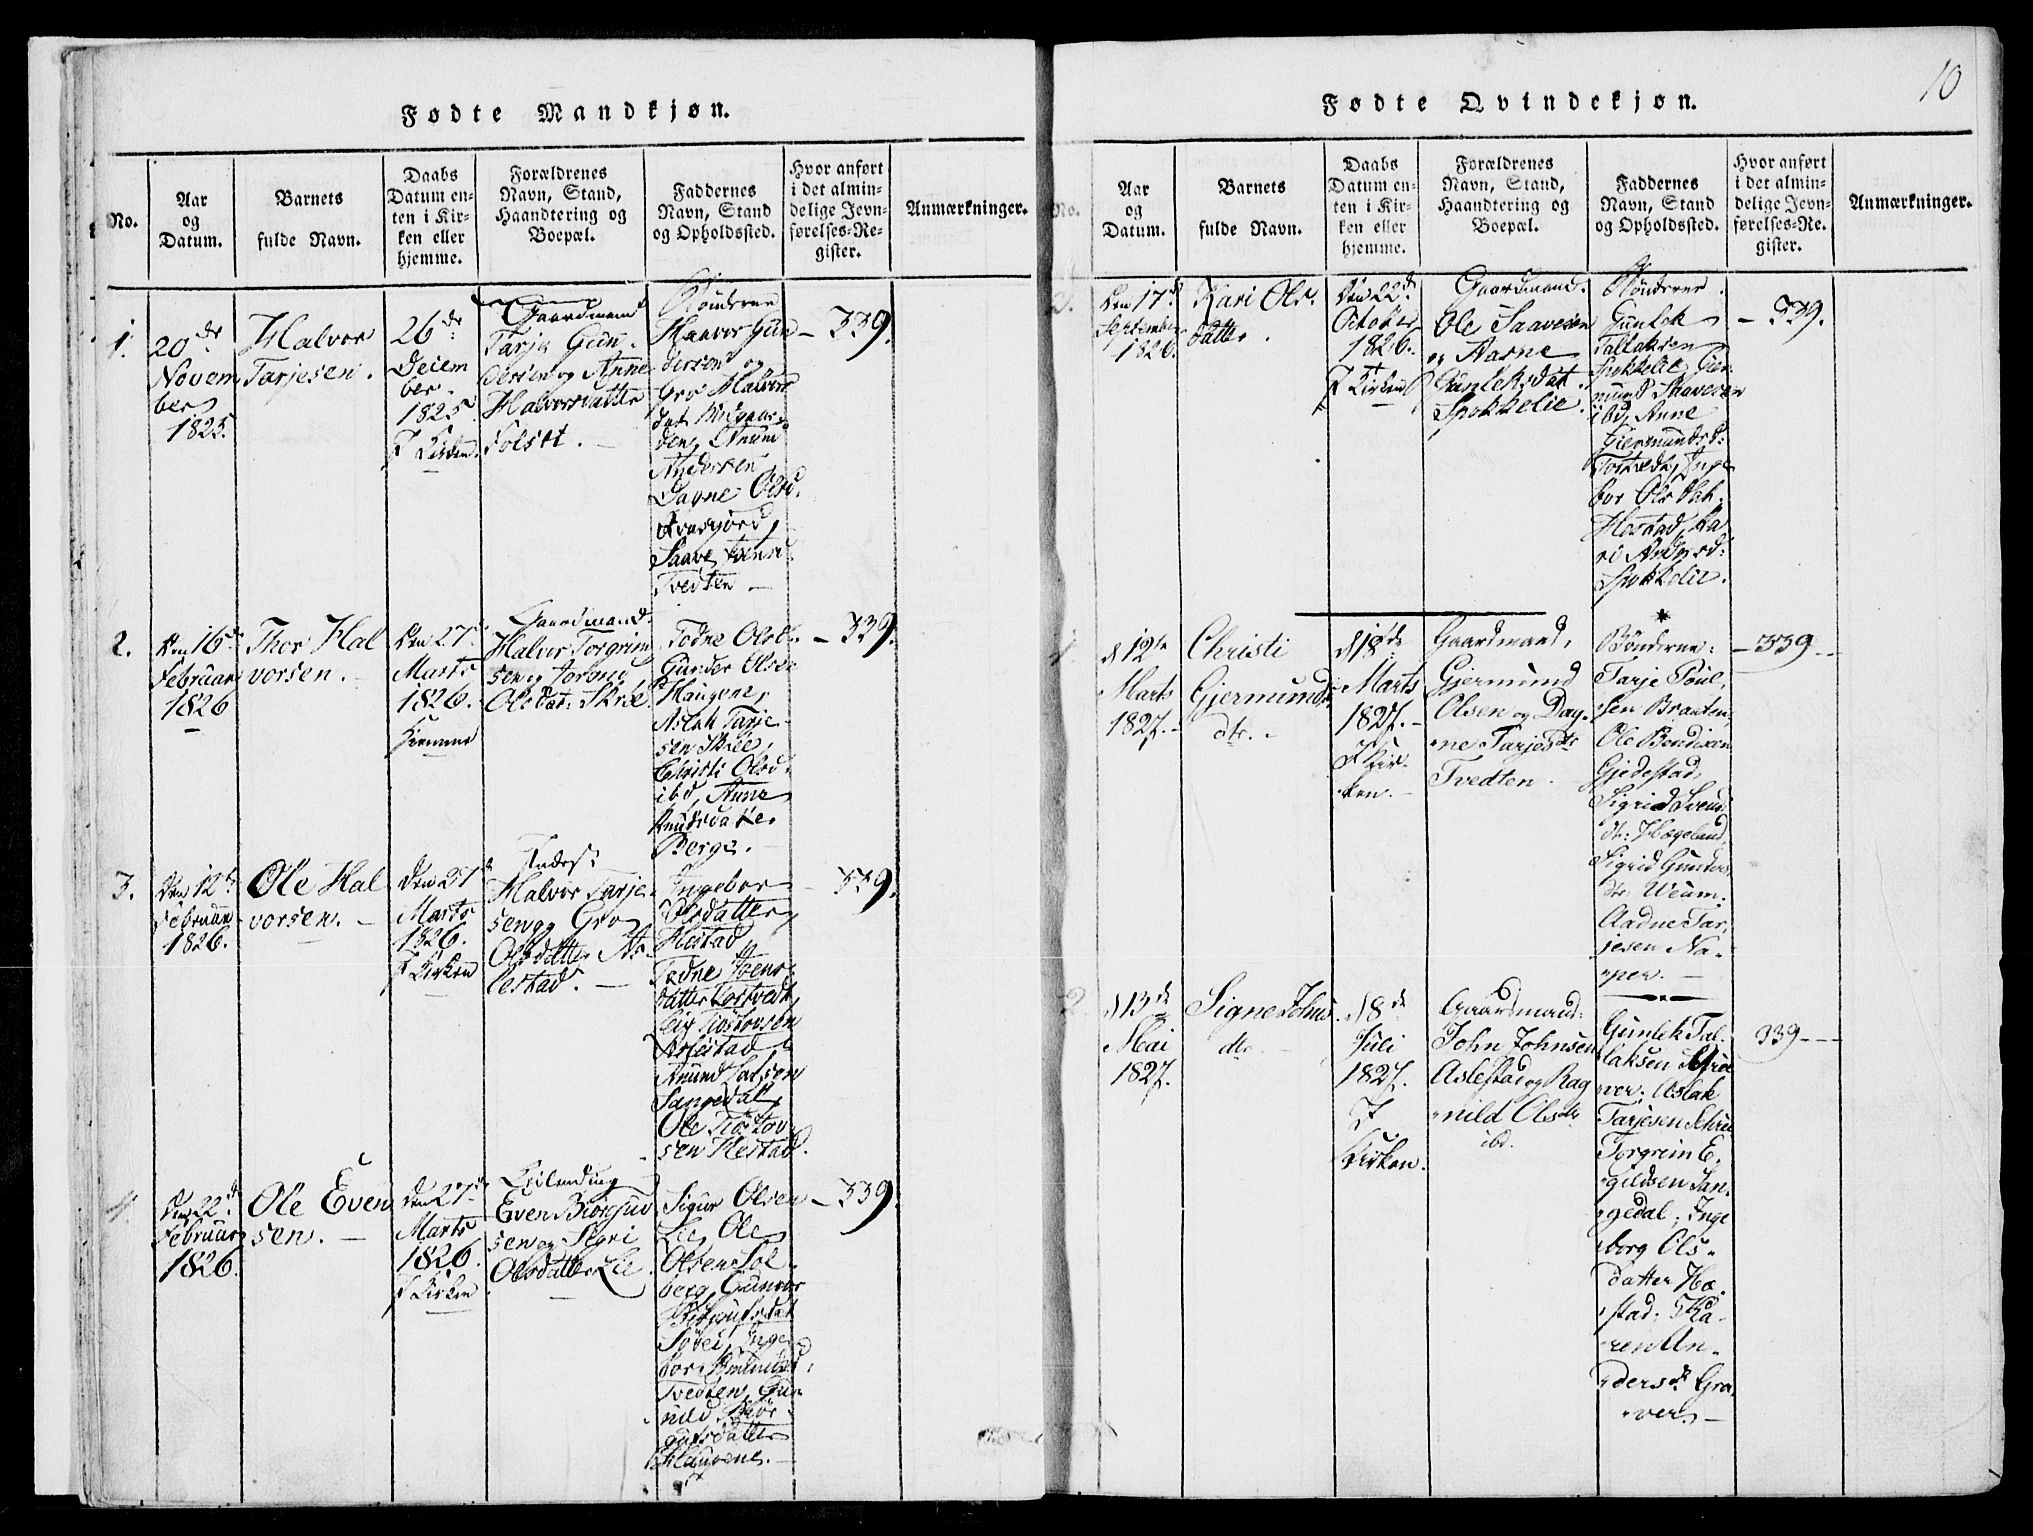 Fødte Mandkjøn.
No.
Aar
og
Datum.
Barnets
fulde Navn.
Daabs
Datum en-
ten i Kir-
ken eller
hjemme.
Forældrenes
Navn, Stand,
Haandtering og
Boepæl.
Faddernes
Navn, Stand
og Opholdssted.
Hvor anført
i det almin-
delige Jevn-
førelses-Re-
gister.
Anmærkninger.
1.
20de
Novem
ber
1825.
Halvor
Tarjesen.
26de
Decem
ber
1825.
I Kirken.
Gaardmand
Tarje Gun-
dersen og Anne
Halvorsdatter
Bønderne
Haavor Gun
dersen og
Gro Halvors
dat
Anund
Andersen
Dagne Olsd.
Saave
Tvedten
339.
2.
Den 16de
Februar
1826
Thor Hal
vorsen.
Den 27de
Marts
1826.
Hjemme
Gaardmand
Halvor Torgrim
sen og
Olsdat: Skrie
Todne Olsd.
Gunder Olsen
Haugene,
Aslak Tarje
sen Skrie,
Christi Olsd.
ibd, Anne
Knudsdatter
Berge.
339.
3.
Den 12te
Februar
1826.
Ole Hal
vorsen.
Den 27de
Marts
1826.
I Kirken
Halvor Tarje
sen og Gro
Olsdatter As
lestad.
Ingebor
Olsdatter
Hestad
Todne Joens
datter Tostvedt,
Aslestad
Anund
Sangedal,
Ole Tostov
sen Hestad.
339.
4.
Den 22de
Februar
1826.
Ole Even
sen.
Den 27de
Marts
1826.
I Kirken
Even Biorguv
sen og Sigri
Olsdatter Lie
Sigur Olsen
Lie, Ole
Olsen Sol
berg, Gunvor
Inge
bor Amunds
Tvedten, Gun
nild Biør
guvsdatter
Haugene.
339.
10
Fødte Qvindekjøn.
No.
Aar
og
Datum.
Barnets
fulde Navn.
Daabs
Datum en-
ten i Kir-
ken eller
hjemme.
Forældrenes
Navn, Stand,
Haandtering og
Boepæl.
Faddernes
Navn, Stand
og Opholdssted.
Hvor anført
i det almin-
delige Jevn-
førelses-Re-
gister.
Anmærkninger.
2.
Den 17de
September
1826.
Kari Ols-
datter.
Den 22de
October
1826.
I Kirken
Gaardmand.
Ole Saavesen
og Aasne
Gunleksdat.
Spokkelie.
Bønderne
Gunlek
Tallaksen
Spokkelie, Gier
mund Saavesen
ibd, Anne
Giermundsd:
Tostvedt, Inge
bor Olsdat.
Hestad, Ka
ri Andersd:
Spokkelie.
339.
1.
d 12te
Marts
1827.
Christi
Gjermunds
dtr.
d 18de
Marts
1827.
I Kir-
ken.
Gaardmand,
Gjermund
Olsen og Dag-
ne Tarjesdtr
Tvedten.
Bønderne:
Tarje Poul-
sen Braaten
Ole Bendixen
Gjedestad,
Sigrid Svens
dtr: Hægeland,
Sigrid Gunders
dtr Weum.
Aadne Tar-
jesen Na-
per.
339
2.
d 13de
Mai
1827.
Signe Johns
dtr.
d 8de
Juli
1827.
I
Kirken.
Gaardmand:
John Johnsen
Aslestad og Rag
nild Olsdtr
ibd.
Gunlek Tal-
laksen Gra
ver, Aslak
Tarjesen Schrie
Torgrim E-
gildsen San-
gedal, Inge
borg Ols-
datter He-
stad. Ka-
ren An-
dersdr Gra
ver.
339